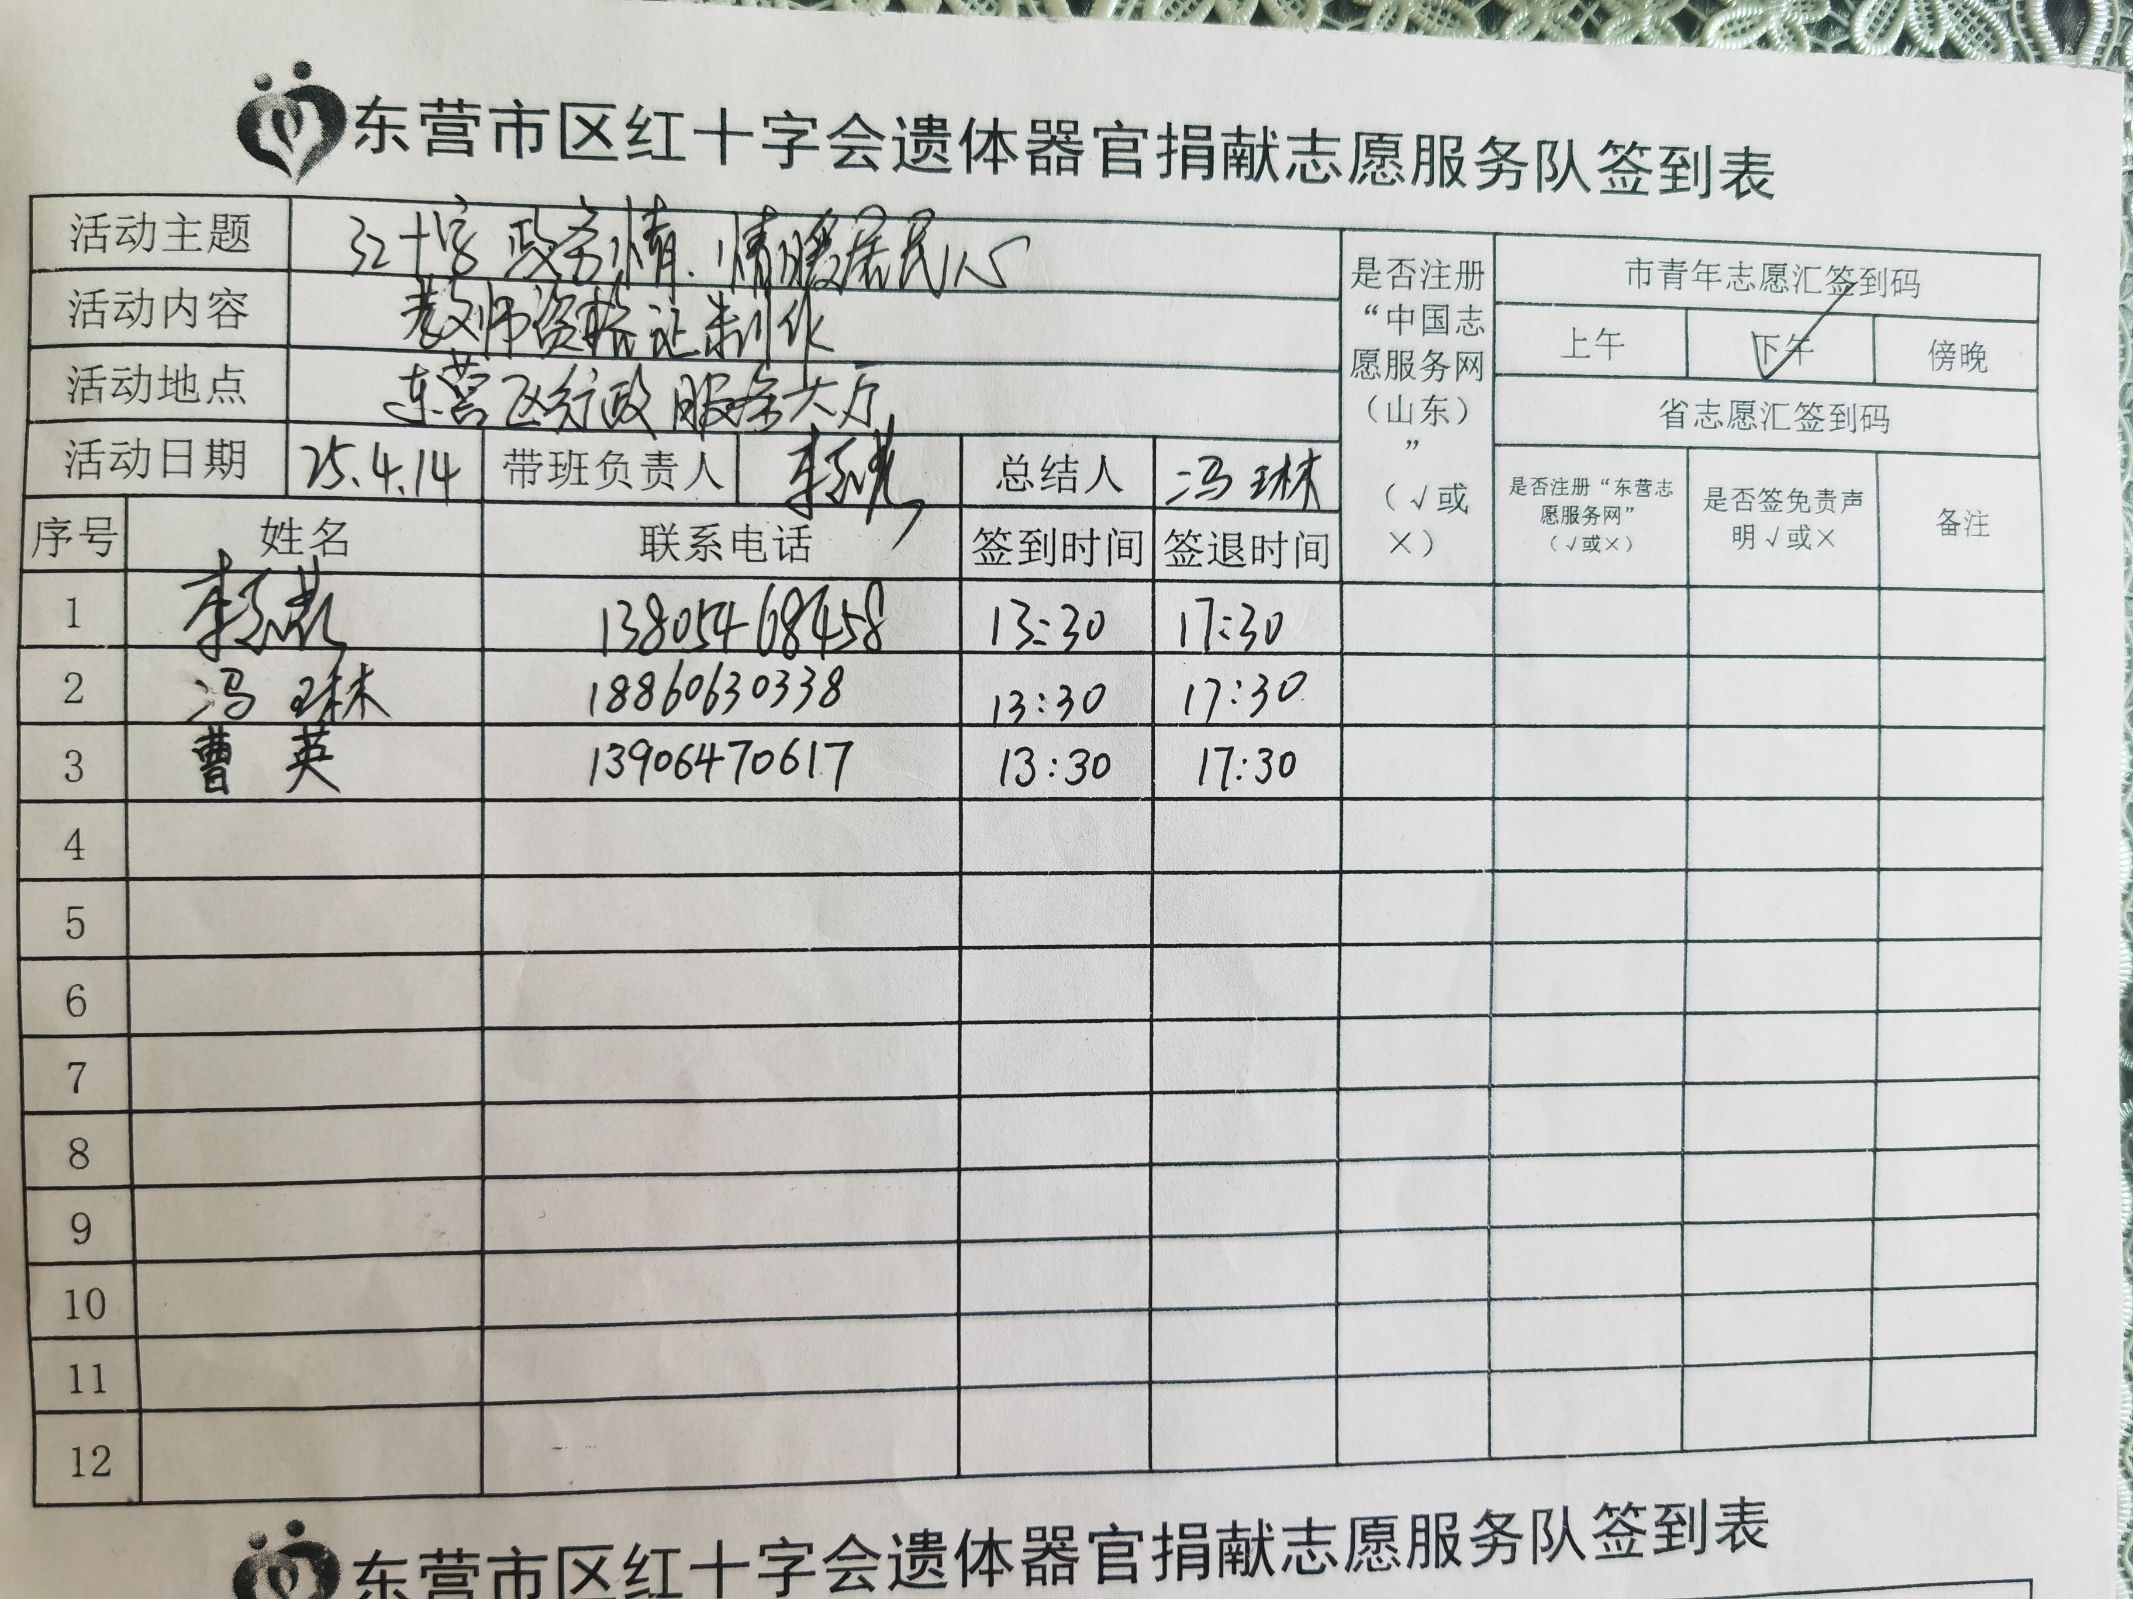 东营市区红十字会遗体器官捐献志愿服务队签到表
活动主题 红十字 政务情.情暖居民心 是否注册“中国志愿服务网（山东）”（√或×） 市青年志愿汇签到码
活动内容 教师资格证制作 上午 下午 √ 傍晚
活动地点 东营区行政服务大厅 省志愿汇签到码
活动日期 25.4.14 带班负责人 总结人 冯琳 是否注册“东营志愿服务网”（√或×） 是否签免责声明√或× 备注
序号 姓名 联系电话 签到时间 签退时间
1 13805468458 13:30 17:30
2 冯琳 18860630338 13:30 17:30
3 曹英 13906470617 13:30 17:30
4
5
6
7
8
9
10
11
12
东营市区红十字会遗体器官捐献志愿服务队签到表